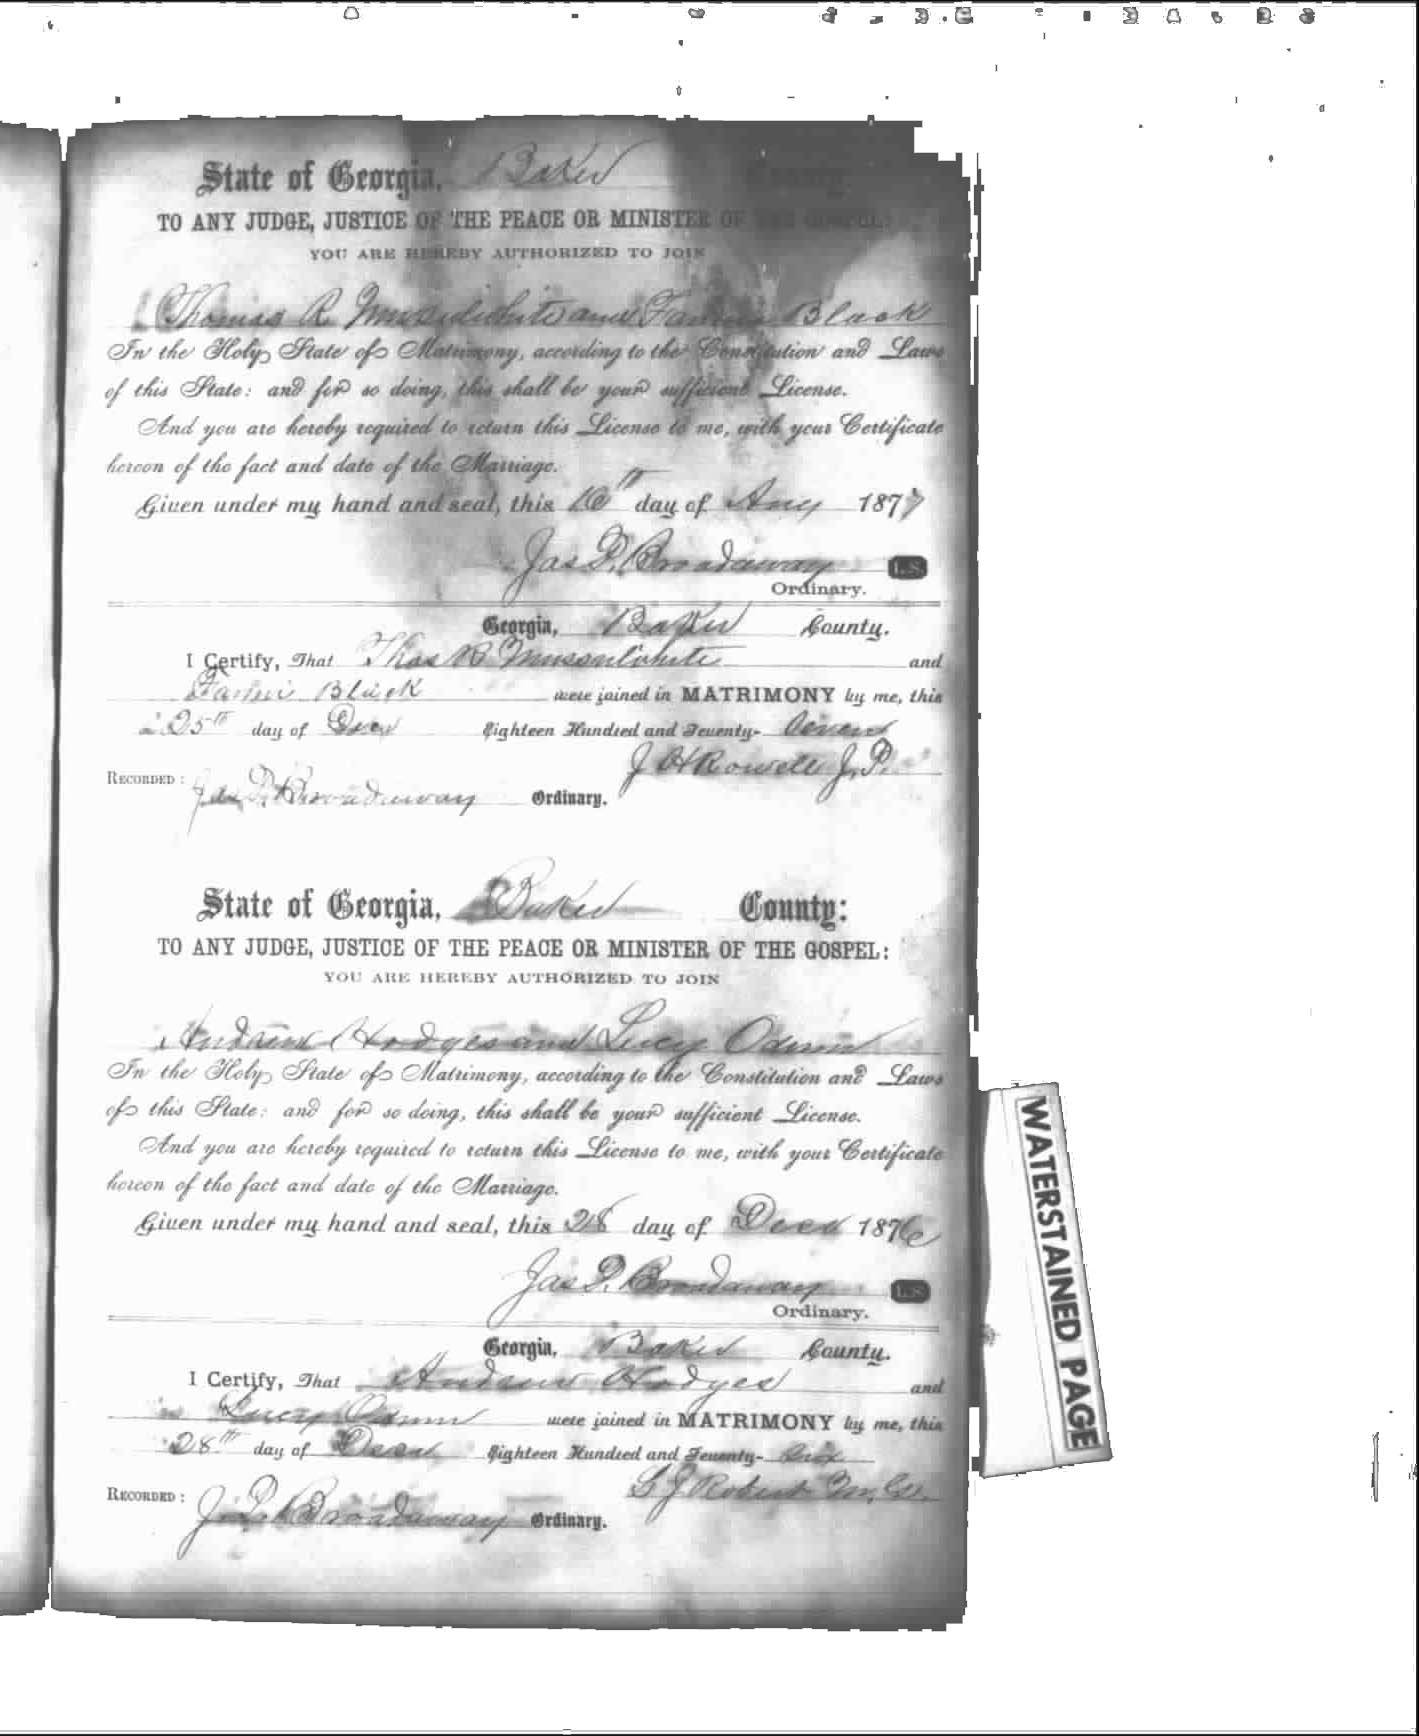 State of Georgia, Baker County
TO ANY JUDGE, JUSTICE OF THE PEACE OR MINISTER OF THE GOSPEL:
YOU ARE HEREBY AUTHORIZED TO JOIN
Thomas R and Black
In the Holy State of Matrimony, according to the Constitution and Laws
of this State: and for so doing, this shall be your sufficient License.
And you are hereby required to return this License to me, with your Certificate
hereon of the fact and date of the Marriage.
Given under my hand and seal, this 16th day of Aug 1877
Jas P. Broadaway L.S.
Ordinary.
Georgia, Baker County.
I Certify, That Thos R Musselwhite and
Black were joined in MATRIMONY by me, this
25th day of Eighteen Hundred and Seventy- Seven
J H Rowell J.P.
RECORDED: Jas P. Broadaway Ordinary.
State of Georgia, Baker County:
TO ANY JUDGE, JUSTICE OF THE PEACE OR MINISTER OF THE GOSPEL:
YOU ARE HEREBY AUTHORIZED TO JOIN
Andrew Hodges and Lucy Odum
In the Holy State of Matrimony, according to the Constitution and Laws
of this State: and for so doing, this shall be your sufficient License.
And you are hereby required to return this License to me, with your Certificate
hereon of the fact and date of the Marriage.
Given under my hand and seal, this 28 day of Decr 1876
Jas P. Broadaway L.S.
Ordinary.
Georgia, Baker County.
I Certify, That Andrew Hodges and
Lucy Odum were joined in MATRIMONY by me, this
28th day of Decr Eighteen Hundred and Seventy- Six
J Robert M.G.
RECORDED: J. P. Broadaway Ordinary.
WATERSTAINED PAGE